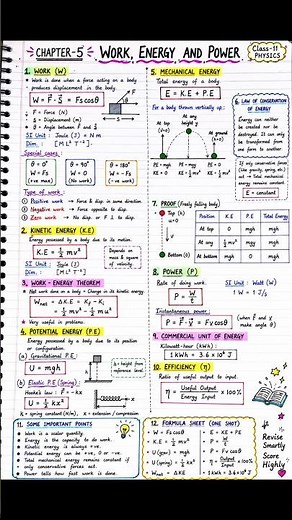 CHAPTER-5 WORK, ENERGY AND POWER
Class-11
PHYSICS
1. WORK (W)
• Work is done when a force acting on a body
produces displacement in the body.
W = F⃗ · S⃗ = Fs cosθ
F = Force (N)
S = Displacement (m)
θ = Angle between F⃗ and S⃗
SI Unit : Joule (J) = N m
Dim : [M L² T⁻²]
Special cases :
θ = 0°
W = Fs
(+ve max)
θ = 90°
W = 0
(No work)
θ = 180°
W = -Fs
(-ve max)
Type of work :
① Positive work → Force & disp. in same direction.
② Negative work → Force opposite to disp.
③ Zero work → No disp. or F ⊥ to disp.
2. KINETIC ENERGY (K.E)
Energy possessed by a body due to its motion.
K.E = ½ mv²
Depends on
mass & square
of velocity.
SI Unit : Joule (J)
Dim : [M L² T⁻²]
3. WORK - ENERGY THEOREM
• Net work done on a body = Change in its kinetic energy
W_net = ΔK.E = K_f - K_i
= ½ mv² - ½ mu²
• Very useful in problems.
4. POTENTIAL ENERGY (P.E)
Energy possessed by a body due to its position
or configuration.
(a) Gravitational P.E
U = mgh
h = height from
reference level
(b) Elastic P.E (Spring) :
Hooke's law : F = -kx
U = ½ kx²
k = spring constant (N/m), x = extension / compression
5. MECHANICAL ENERGY
Total energy of a body.
E = K.E + P.E
For a body thrown vertically up :
At top
(v=0)
At any
height y
At ground
(h=0)
PE = mgh
KE = 0
PE = mgy
KE = ½ mv²
PE = 0
KE = ½ mv²
6. LAW OF CONSERVATION
OF ENERGY
Energy can neither
be created nor be
destroyed. It can only
be transformed from
one form to another.
If only conservative forces
(like gravity, spring, etc.)
act → Total mechanical
energy remains constant.
E = constant
7. PROOF (Freely falling body)
Top (h)
u = 0
Bottom (0)
Position K.E P.E Total Energy
At top 0 mgh mgh
At any y ½ mv² mgy mgh
At bottom ½ mv² 0 mgh
8. POWER (P)
Rate of doing work.
P = W/t
SI Unit : Watt (W)
1 W = 1 J/s
Instantaneous power :
P = F⃗ · v⃗ = Fv cosθ
(when F⃗ and v⃗
make angle θ)
9. COMMERCIAL UNIT OF ENERGY
Kilowatt-hour (kWh) :
1 kWh = 3.6 × 10⁶ J
10. EFFICIENCY (η)
Ratio of useful output to input.
η = Useful Output / Energy Input × 100%
11. SOME IMPORTANT POINTS
• Work is a scalar quantity.
• Energy is the capacity to do work.
• Kinetic energy is always +ve.
• Potential energy can be +ve, 0 or -ve.
• Total mechanical energy remains constant if
only conservative forces act.
• Power tells how fast work is done.
12. FORMULA SHEET (ONE SHOT)
• W = Fs cosθ
• K.E = ½ mv²
• U(grav) = mgh
• U(spring) = ½ kx²
• W_net = ΔKE
• E = KE + PE
• P = W/t
• P = Fv cosθ
• η = Output/Input × 100%
• 1 kWh = 3.6 × 10⁶ J
Revise
Smartly
Score
Highly